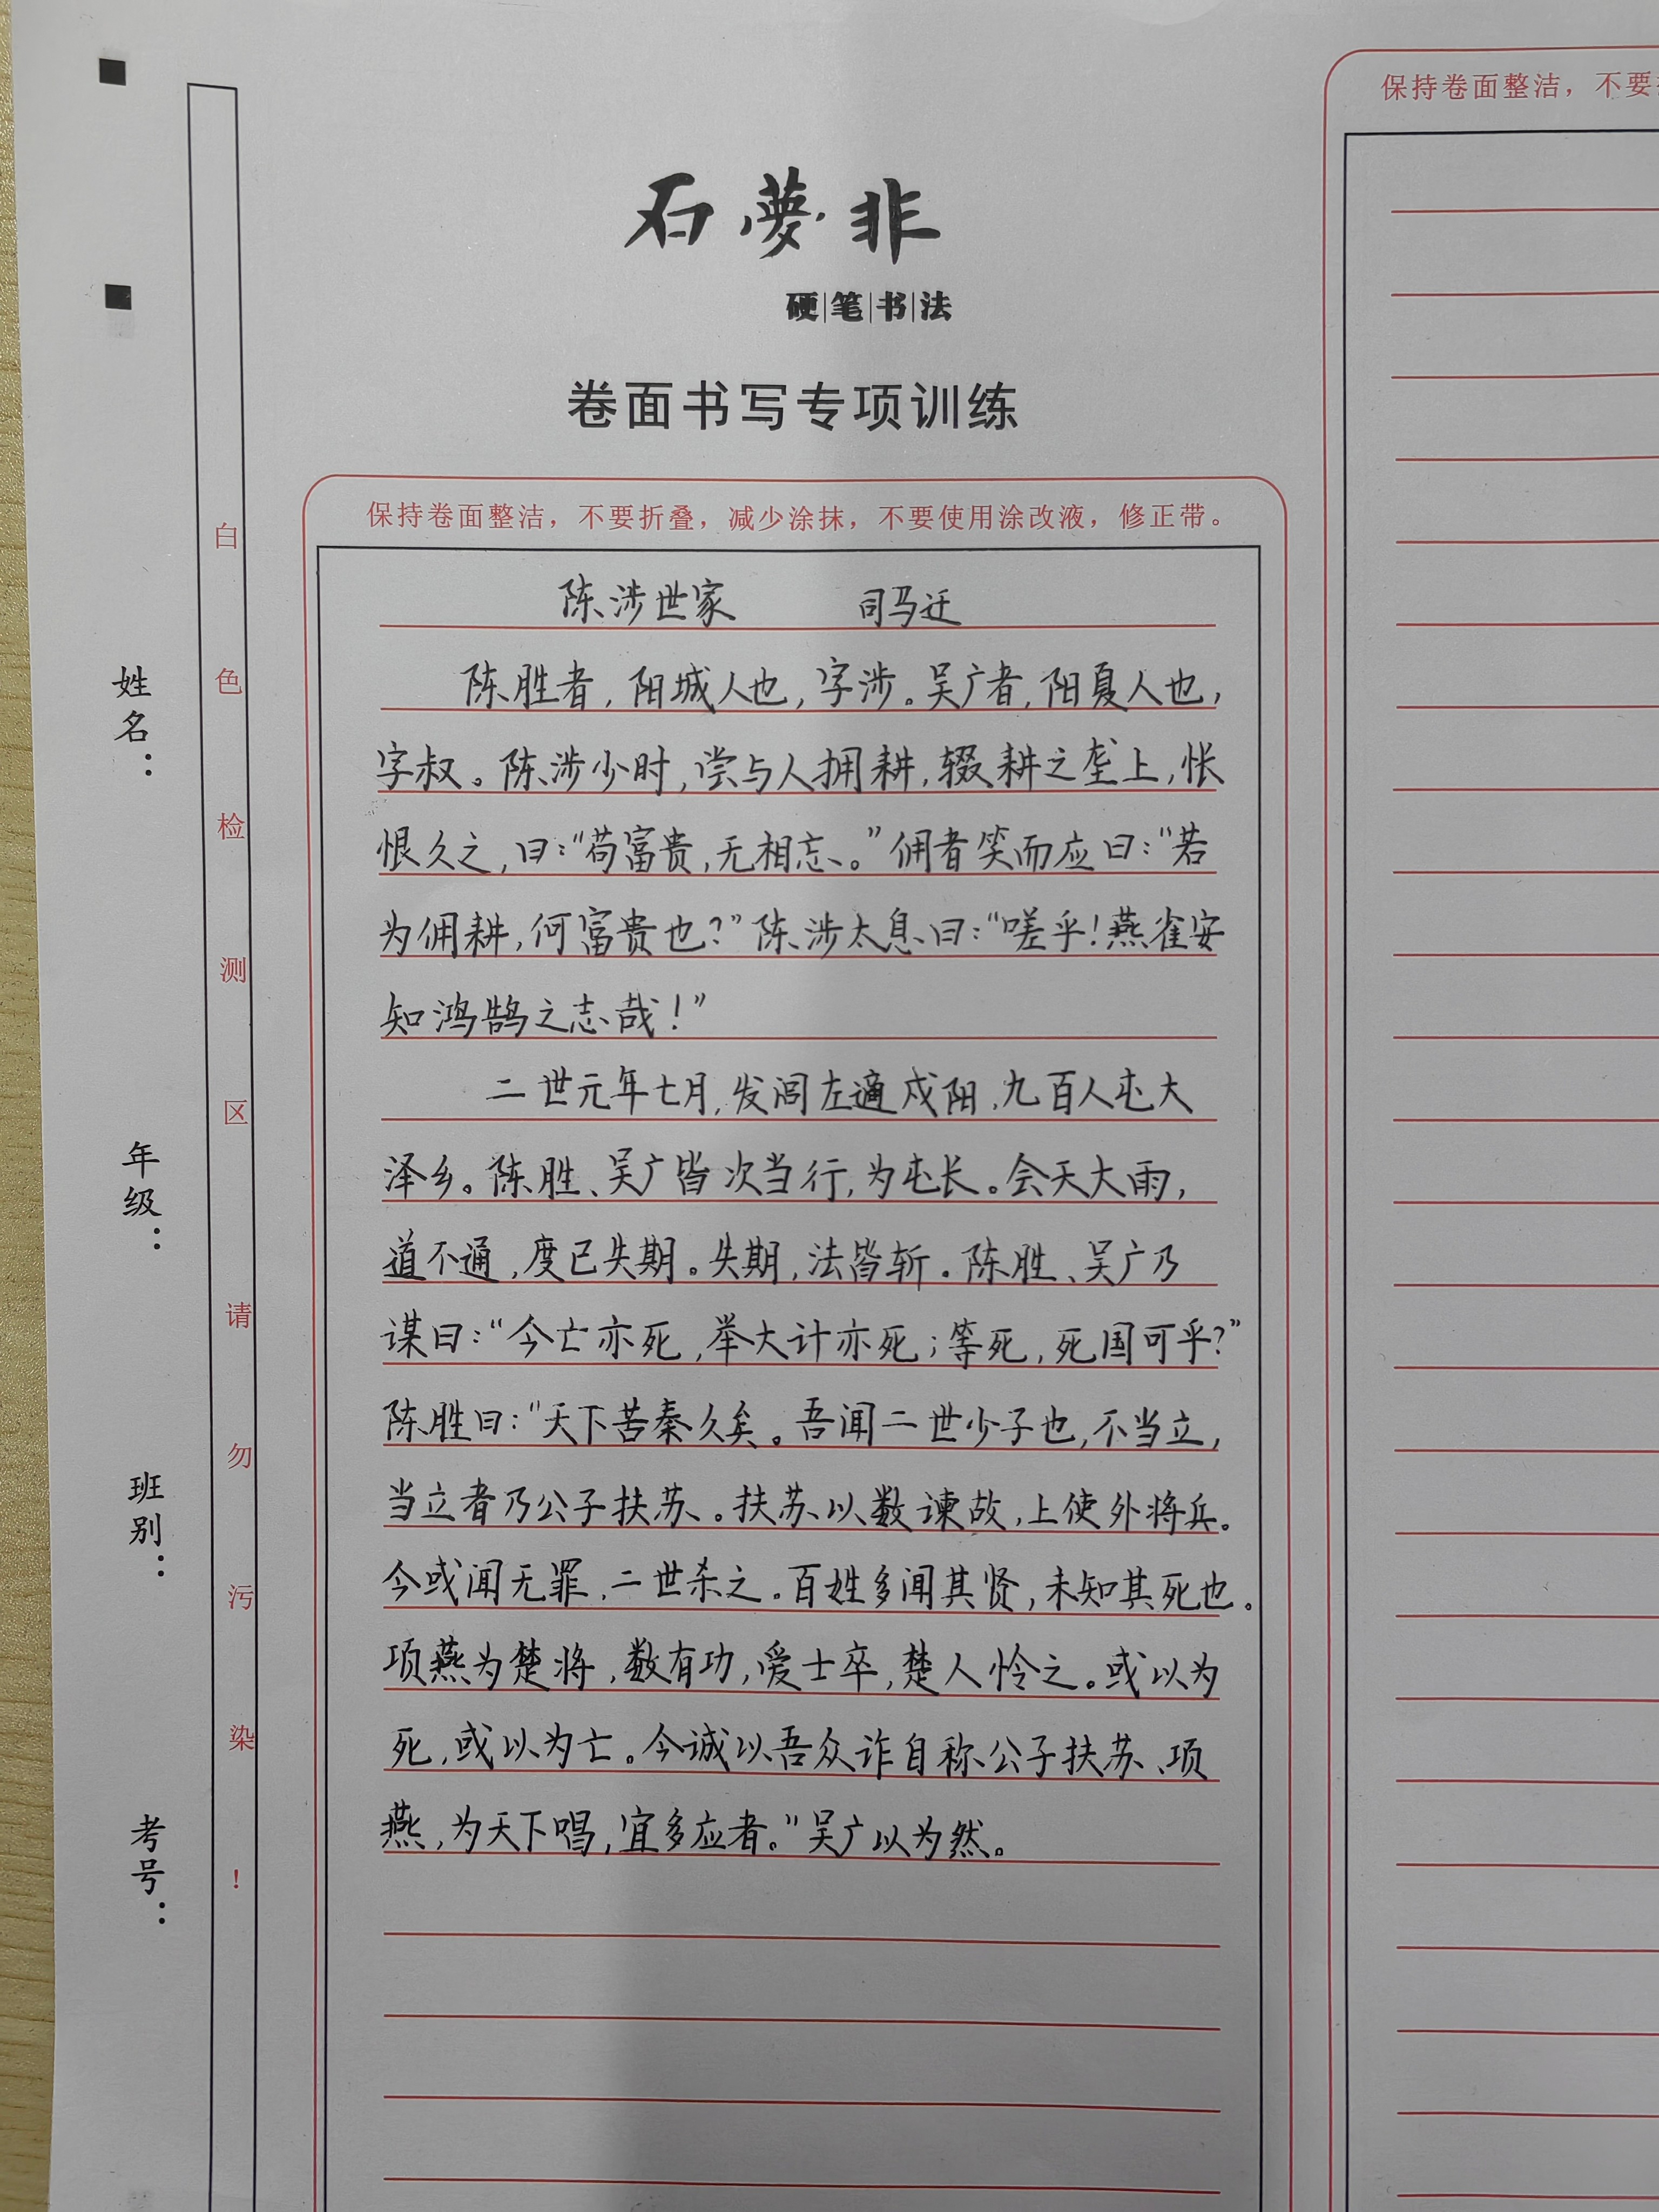 石夢非
硬|笔|书|法
卷面书写专项训练
保持卷面整洁，不要折叠，减少涂抹，不要使用涂改液，修正带。
陈涉世家 司马迁
陈胜者，阳城人也，字涉。吴广者，阳夏人也，
字叔。陈涉少时，尝与人拥耕，辍耕之垄上，怅
恨久之，曰：“苟富贵，无相忘。”佣者笑而应曰：“若
为佣耕，何富贵也？”陈涉太息曰：“嗟乎！燕雀安
知鸿鹄之志哉！”
二世元年七月，发闾左適戍阳，九百人屯大
泽乡。陈胜、吴广皆次当行，为屯长。会天大雨，
道不通，度已失期。失期，法皆斩。陈胜、吴广乃
谋曰：“今亡亦死，举大计亦死；等死，死国可乎？”
陈胜曰：“天下苦秦久矣。吾闻二世少子也，不当立，
当立者乃公子扶苏。扶苏以数谏故，上使外将兵。
今或闻无罪，二世杀之。百姓多闻其贤，未知其死也。
项燕为楚将，数有功，爱士卒，楚人怜之。或以为
死，或以为亡。今诚以吾众诈自称公子扶苏、项
燕，为天下唱，宜多应者。”吴广以为然。
保持卷面整洁，不要
姓名：
年级：
班别：
考号：
白色检测区请勿污染！